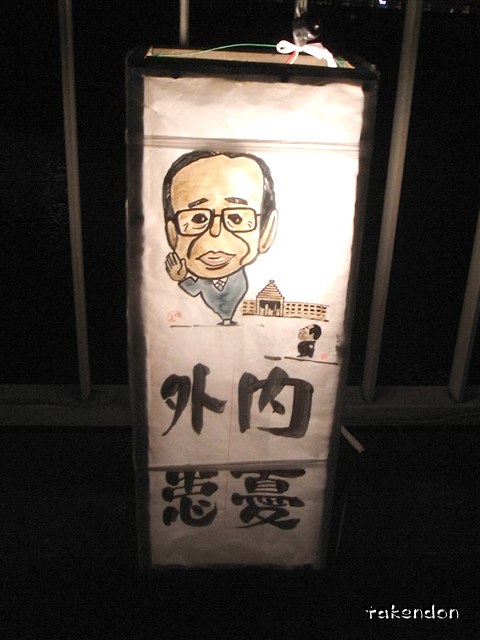 内憂
外患
takendon